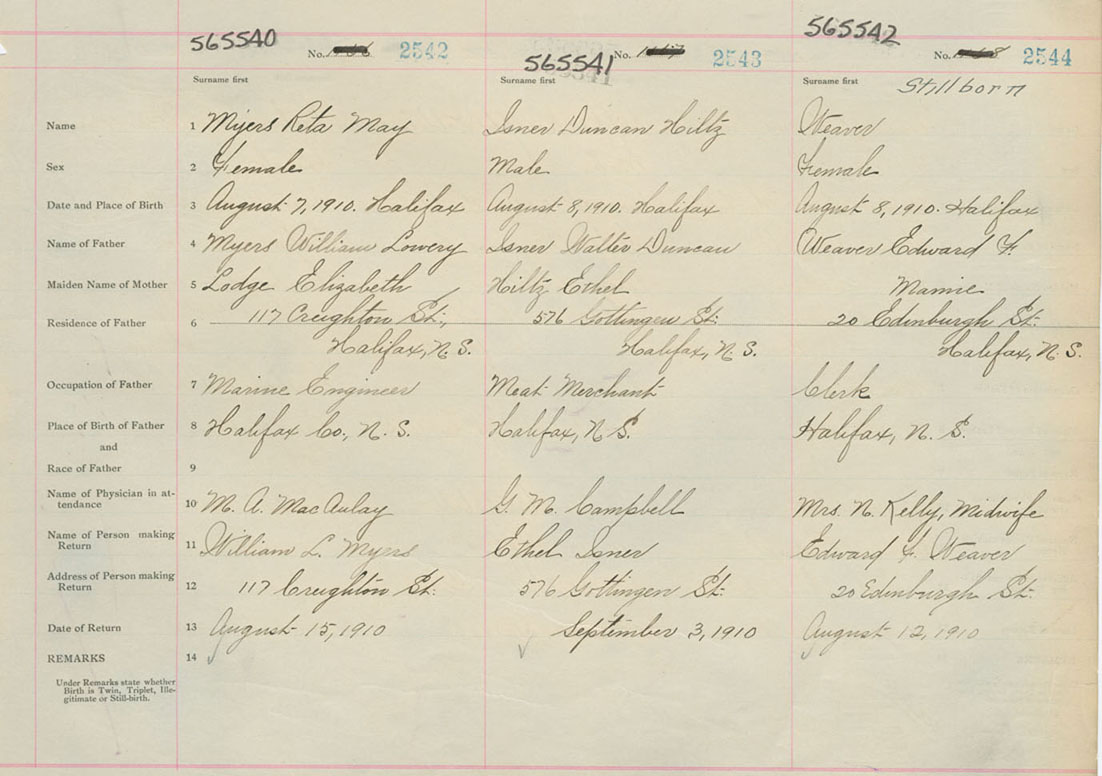 565540 No. 2542 565541 No. 2543 565542 No. 2544
Surname first Surname first Surname first Stillborn
Name 1 Myers Reta May Isner Duncan Hiltz Weaver
Sex 2 Female Male Female
Date and Place of Birth 3 August 7, 1910. Halifax August 8, 1910. Halifax August 8, 1910. Halifax
Name of Father 4 Myers William Lowery Isner Walter Duncan Weaver Edward F.
Maiden Name of Mother 5 Lodge Elizabeth Hiltz Ethel Mamie
Residence of Father 6 117 Creighton St., 576 Gottingen St. 20 Edinburgh St.
Halifax, N.S. Halifax, N.S. Halifax, N.S.
Occupation of Father 7 Marine Engineer Meat Merchant Clerk
Place of Birth of Father 8 Halifax Co., N.S. Halifax, N S. Halifax, N. S.
and
Race of Father 9
Name of Physician in at-
tendance 10 M. A. MacAulay G. M. Campbell Mrs. N. Kelly, Midwife
Name of Person making
Return 11 William L. Myers Ethel Isner Edward F. Weaver
Address of Person making
Return 12 117 Creighton St. 576 Gottingen St. 20 Edinburgh St.
Date of Return 13 August 15, 1910 September 3, 1910 August 12, 1910
REMARKS 14
Under Remarks state whether
Birth is Twin, Triplet, Ille-
gitimate or Still-birth.